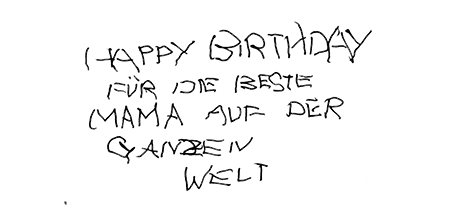 HAPPY BIRTHDAY
FÜR DIE BESTE
MAMA AUF DER
GANZEN
WELT